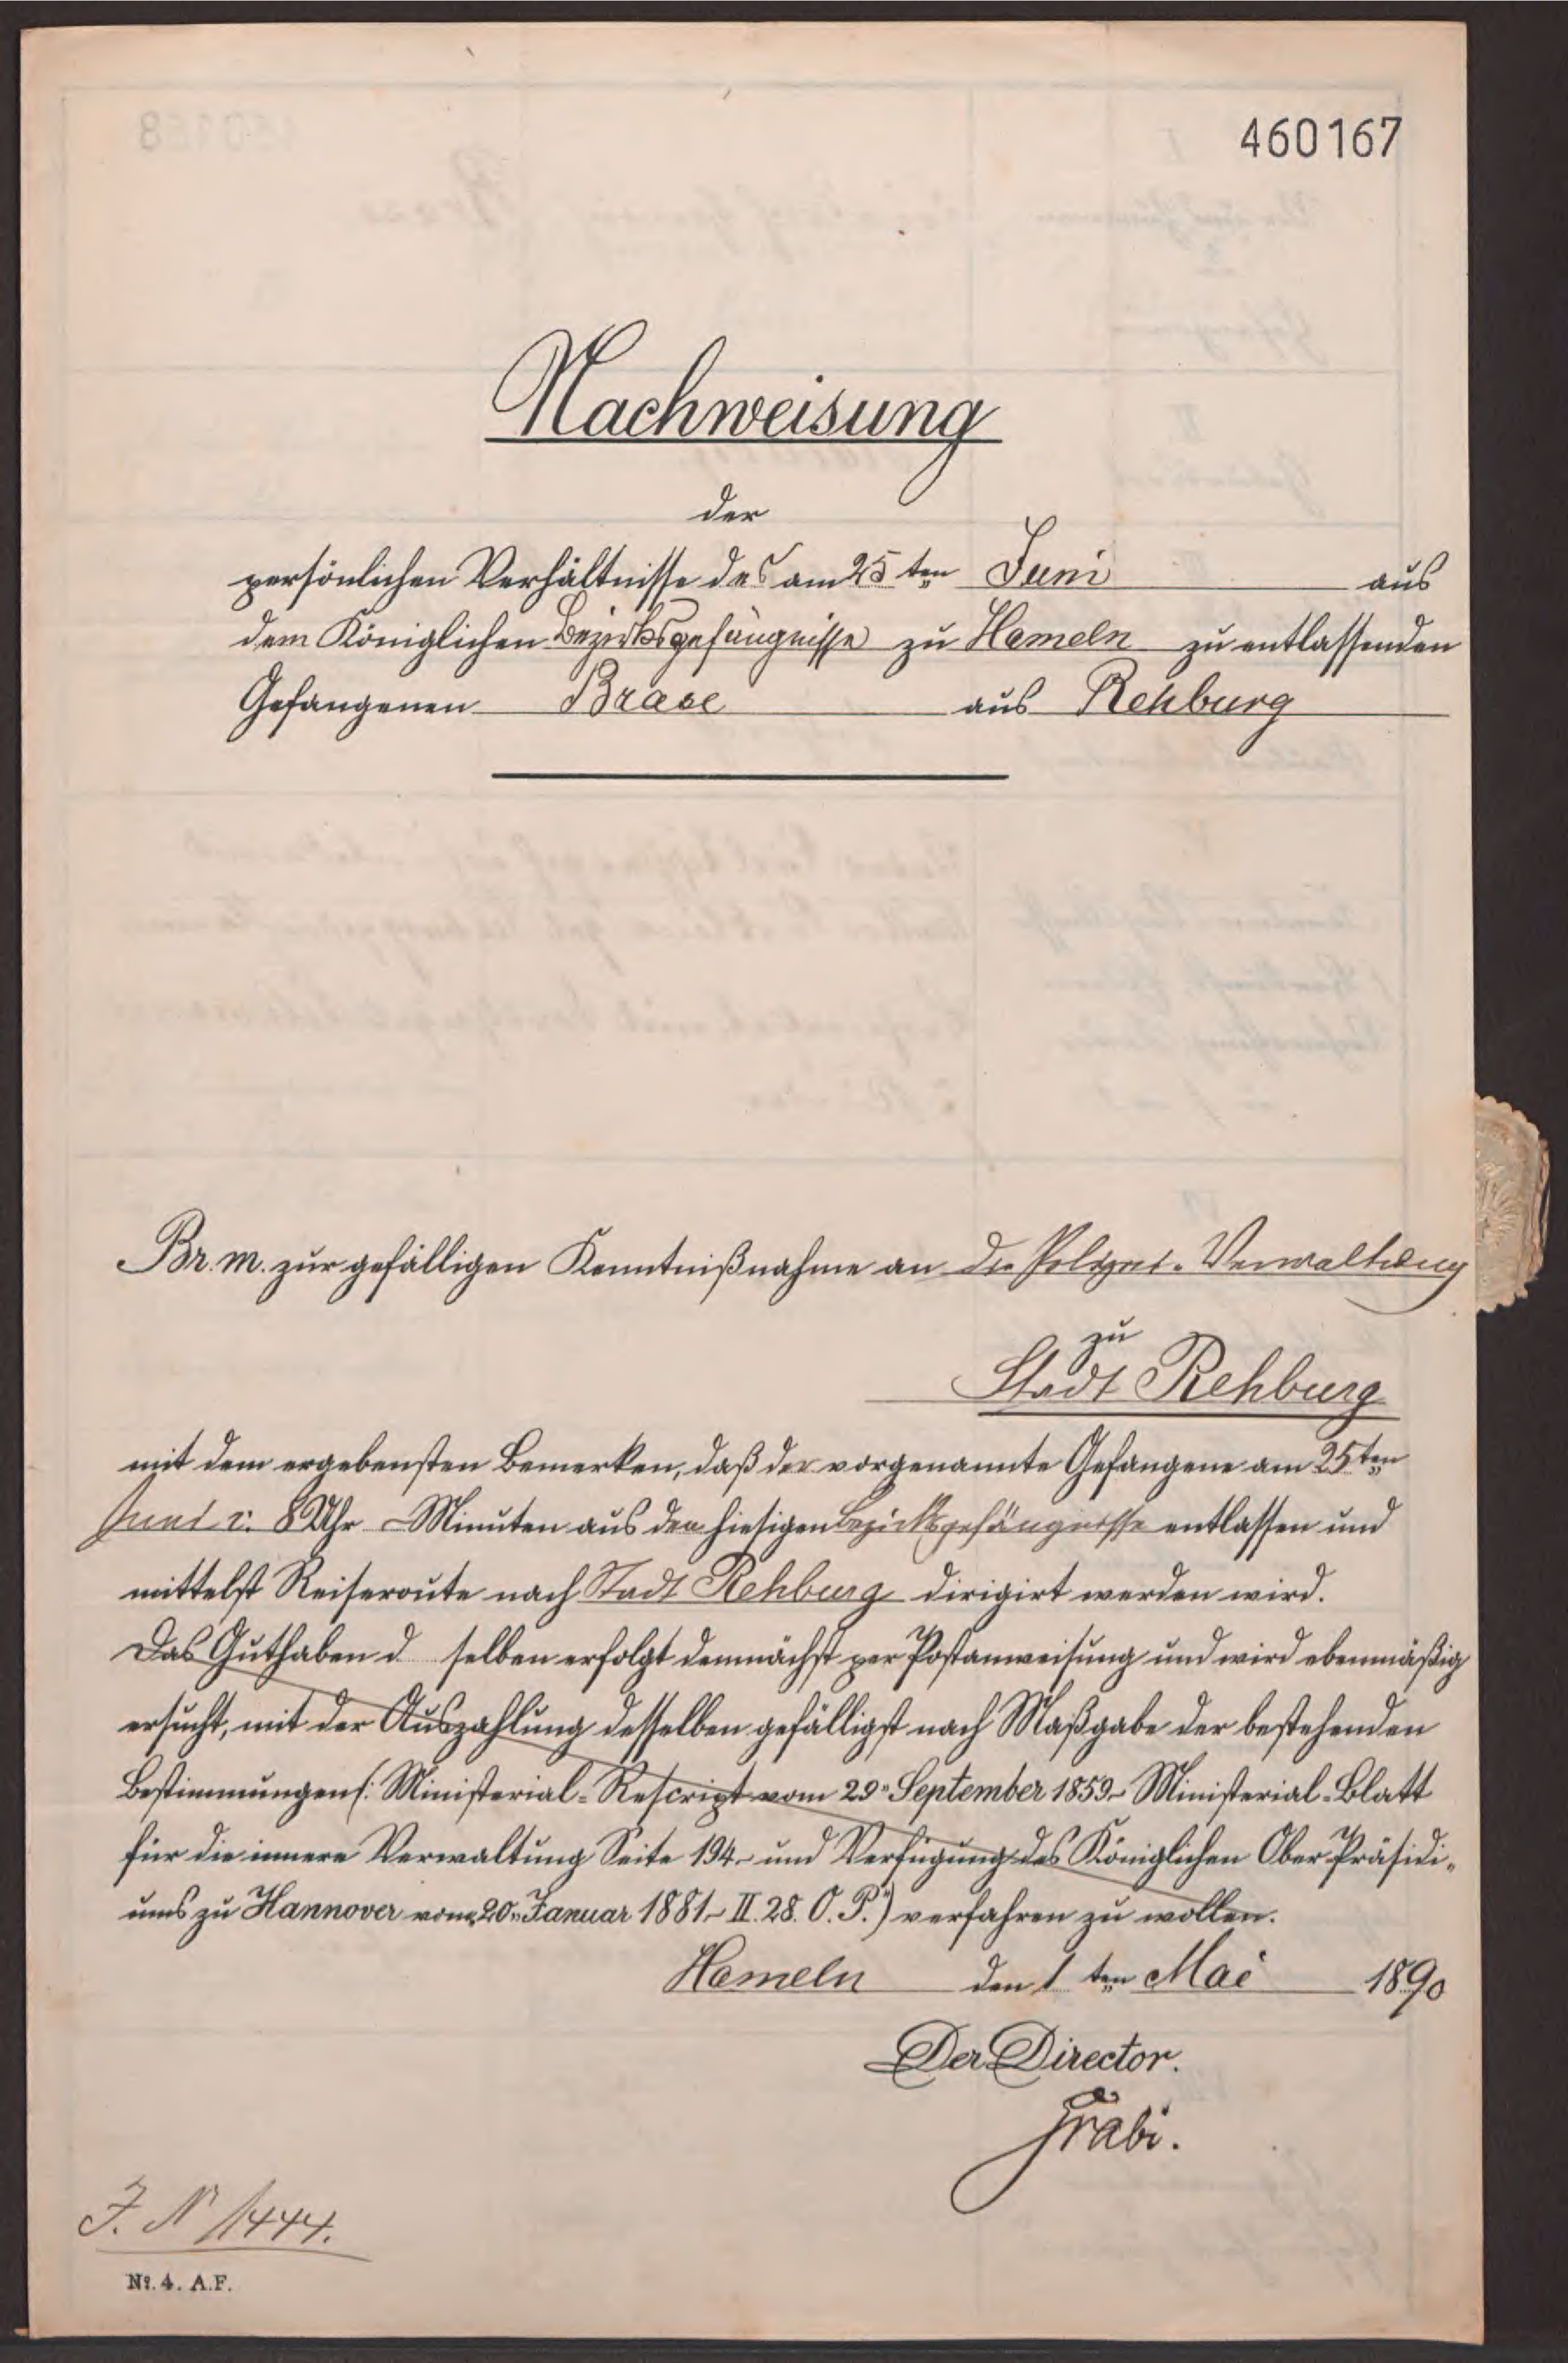 460167
Nachweisung
der
persönlichen Verhältnisse des am 25ten Juni aus
dem Königlichen Bezirksgefängnisse zu Hameln zu entlassenden
Gefangenen Brase aus Rehburg
Br. m. zur gefälligen Kenntnißnahme an die Polizei-Verwaltung
zu
Stadt Rehburg
mit dem ergebensten Bemerken, daß der vorgenannte Gefangene am 25ten
Juni c. 8 Uhr – Minuten aus dem hiesigen Bezirksgefängnisse entlassen und
mittelst Reiseroute nach Stadt Rehburg dirigirt werden wird.
Das Guthaben d selben erfolgt demnächst per Postanweisung und wird ebenmäßig
ersucht, mit der Auszahlung desselben gefälligst nach Maßgabe der bestehenden
Bestimmungen (: Ministerial-Rescript vom 29n September 1859 – Ministerial-Blatt
für die innere Verwaltung Seite 194 – und Verfügung des Königlichen Ober Präsidi-
ums zu Hannover vom 20n Januar 1881 – II. 28. O. P.:) verfahren zu wollen.
Hameln den 1 ten Mai 1890
Der Director.
Grabi.
J. N 1444.
No. 4. A.F.